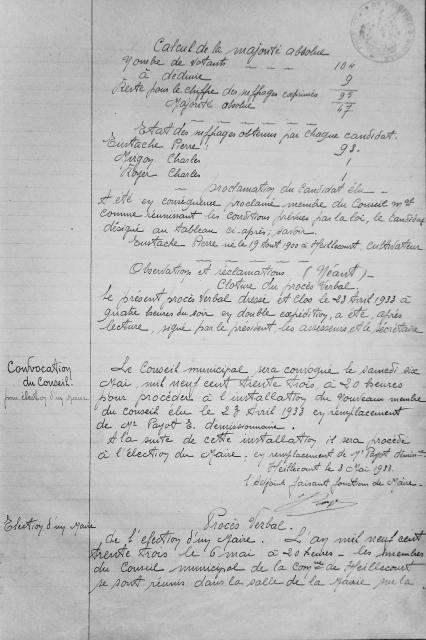 Calcul de la majorité absolue
Nombre de votants 104
à déduire 9
Reste pour le chiffre des suffrages exprimés 95
Majorité absolue 47
Etat des suffrages obtenus par chaque candidat.
Eustache Pierre : 93.
Mirgon Charles 1
Royer Charles 1
Proclamation du Candidat élu
A été en conséquence proclamé membre du Conseil mal
comme réunissant les conditions prévues par la loi, le candidat
désigné au tableau ci-après ; savoir.
Eustache Pierre né le 19 Aout 1900 à Heillecourt, cultivateur
Observations et réclamations (Néant)
Cloture du procès Verbal.
Le présent procès Verbal dressé et clos le 23 Avril 1933 à
quatre heures du soir en double expédition, a été, après
lecture, signé par le président, les assesseurs et le secrétaire
Convocation
du Conseil.
pour élection d'un Maire
Le Conseil municipal sera convoqué le samedi six
Mai, mil neuf cent trente trois, à 20 heures
pour procéder à l'installation du Nouveau membre
du conseil élu le 23 Avril 1933 en remplacement
de Mr Payot E. demissionnaire.
A la suite de cette installation, il sera procédé
à l'élection du Maire. en remplacement de Mr Payot
Heillecourt le 3 Mai 1933.
l'adjoint faisant fonctions de Maire.
Election d'un Maire
Procès Verbal.
de l'élection d'un Maire. L'an mil neuf cent
trente trois le 6 mai à 20 heures - les membres
du Conseil municipal de la comne de Heillecourt
se sont réunis dans la salle de la Mairie sur la